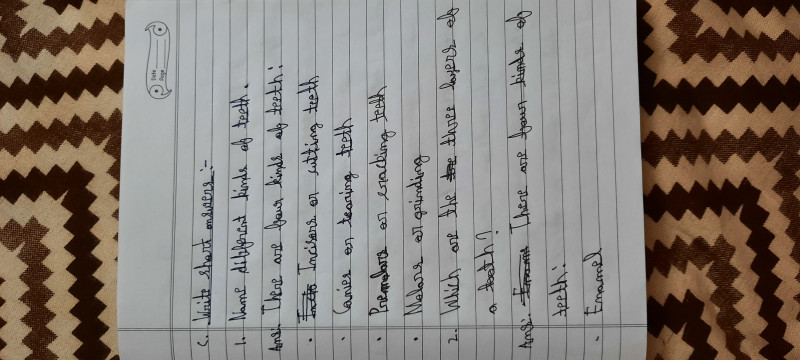 Date
Page
C. Write short answers :-
1. Name different kinds of teeth.
Ans: There are four kinds of teeth:
• Incisors or cutting teeth
• Canies or tearing teeth
• Premolars or cracking teeth
• Molars or grinding
2. Which are the three layers of
a teeth?
Ans: There are four kinds of
teeth:
• Enamel